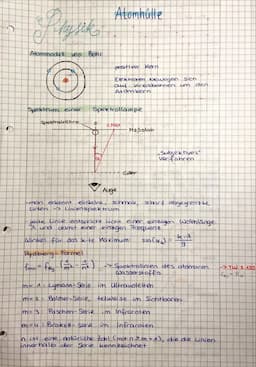 Physik
Atomhülle
Atommodell von Bohr
positiver Kern
Elektronen bewegen sich
auf Kreisbahnen um den
Atomkern
Spektrum einer Spektrallampe
Spektralröhre
k. Max
Maßstab
"Subjektives"
Verfahren
Gitter
Auge
- man erkennt einzelne, schmale, scharf abgegrenzte
Linien → Linienspektrum
- jede Linie entspricht Licht einer einzigen Wellenlänge
λ und damit einer einzigen Frequenz
Winkel für das k-te Maximum: sin(αₖ) = k·λ/g
Rydberg-Formel
→ Spektrallinien des atomaren
Wasserstoffs
m = 1: Lyman-Serie im Ultravioletten
m = 2: Balmer-Serie, teilweise im Sichtbaren
m = 3: Paschen-Serie im Infraroten
m = 4: Brackett-Serie im Infraroten
n ist eine natürliche Zahl (mit n ≥ m+1), die die Linien
innerhalb der Serie kennzeichnet